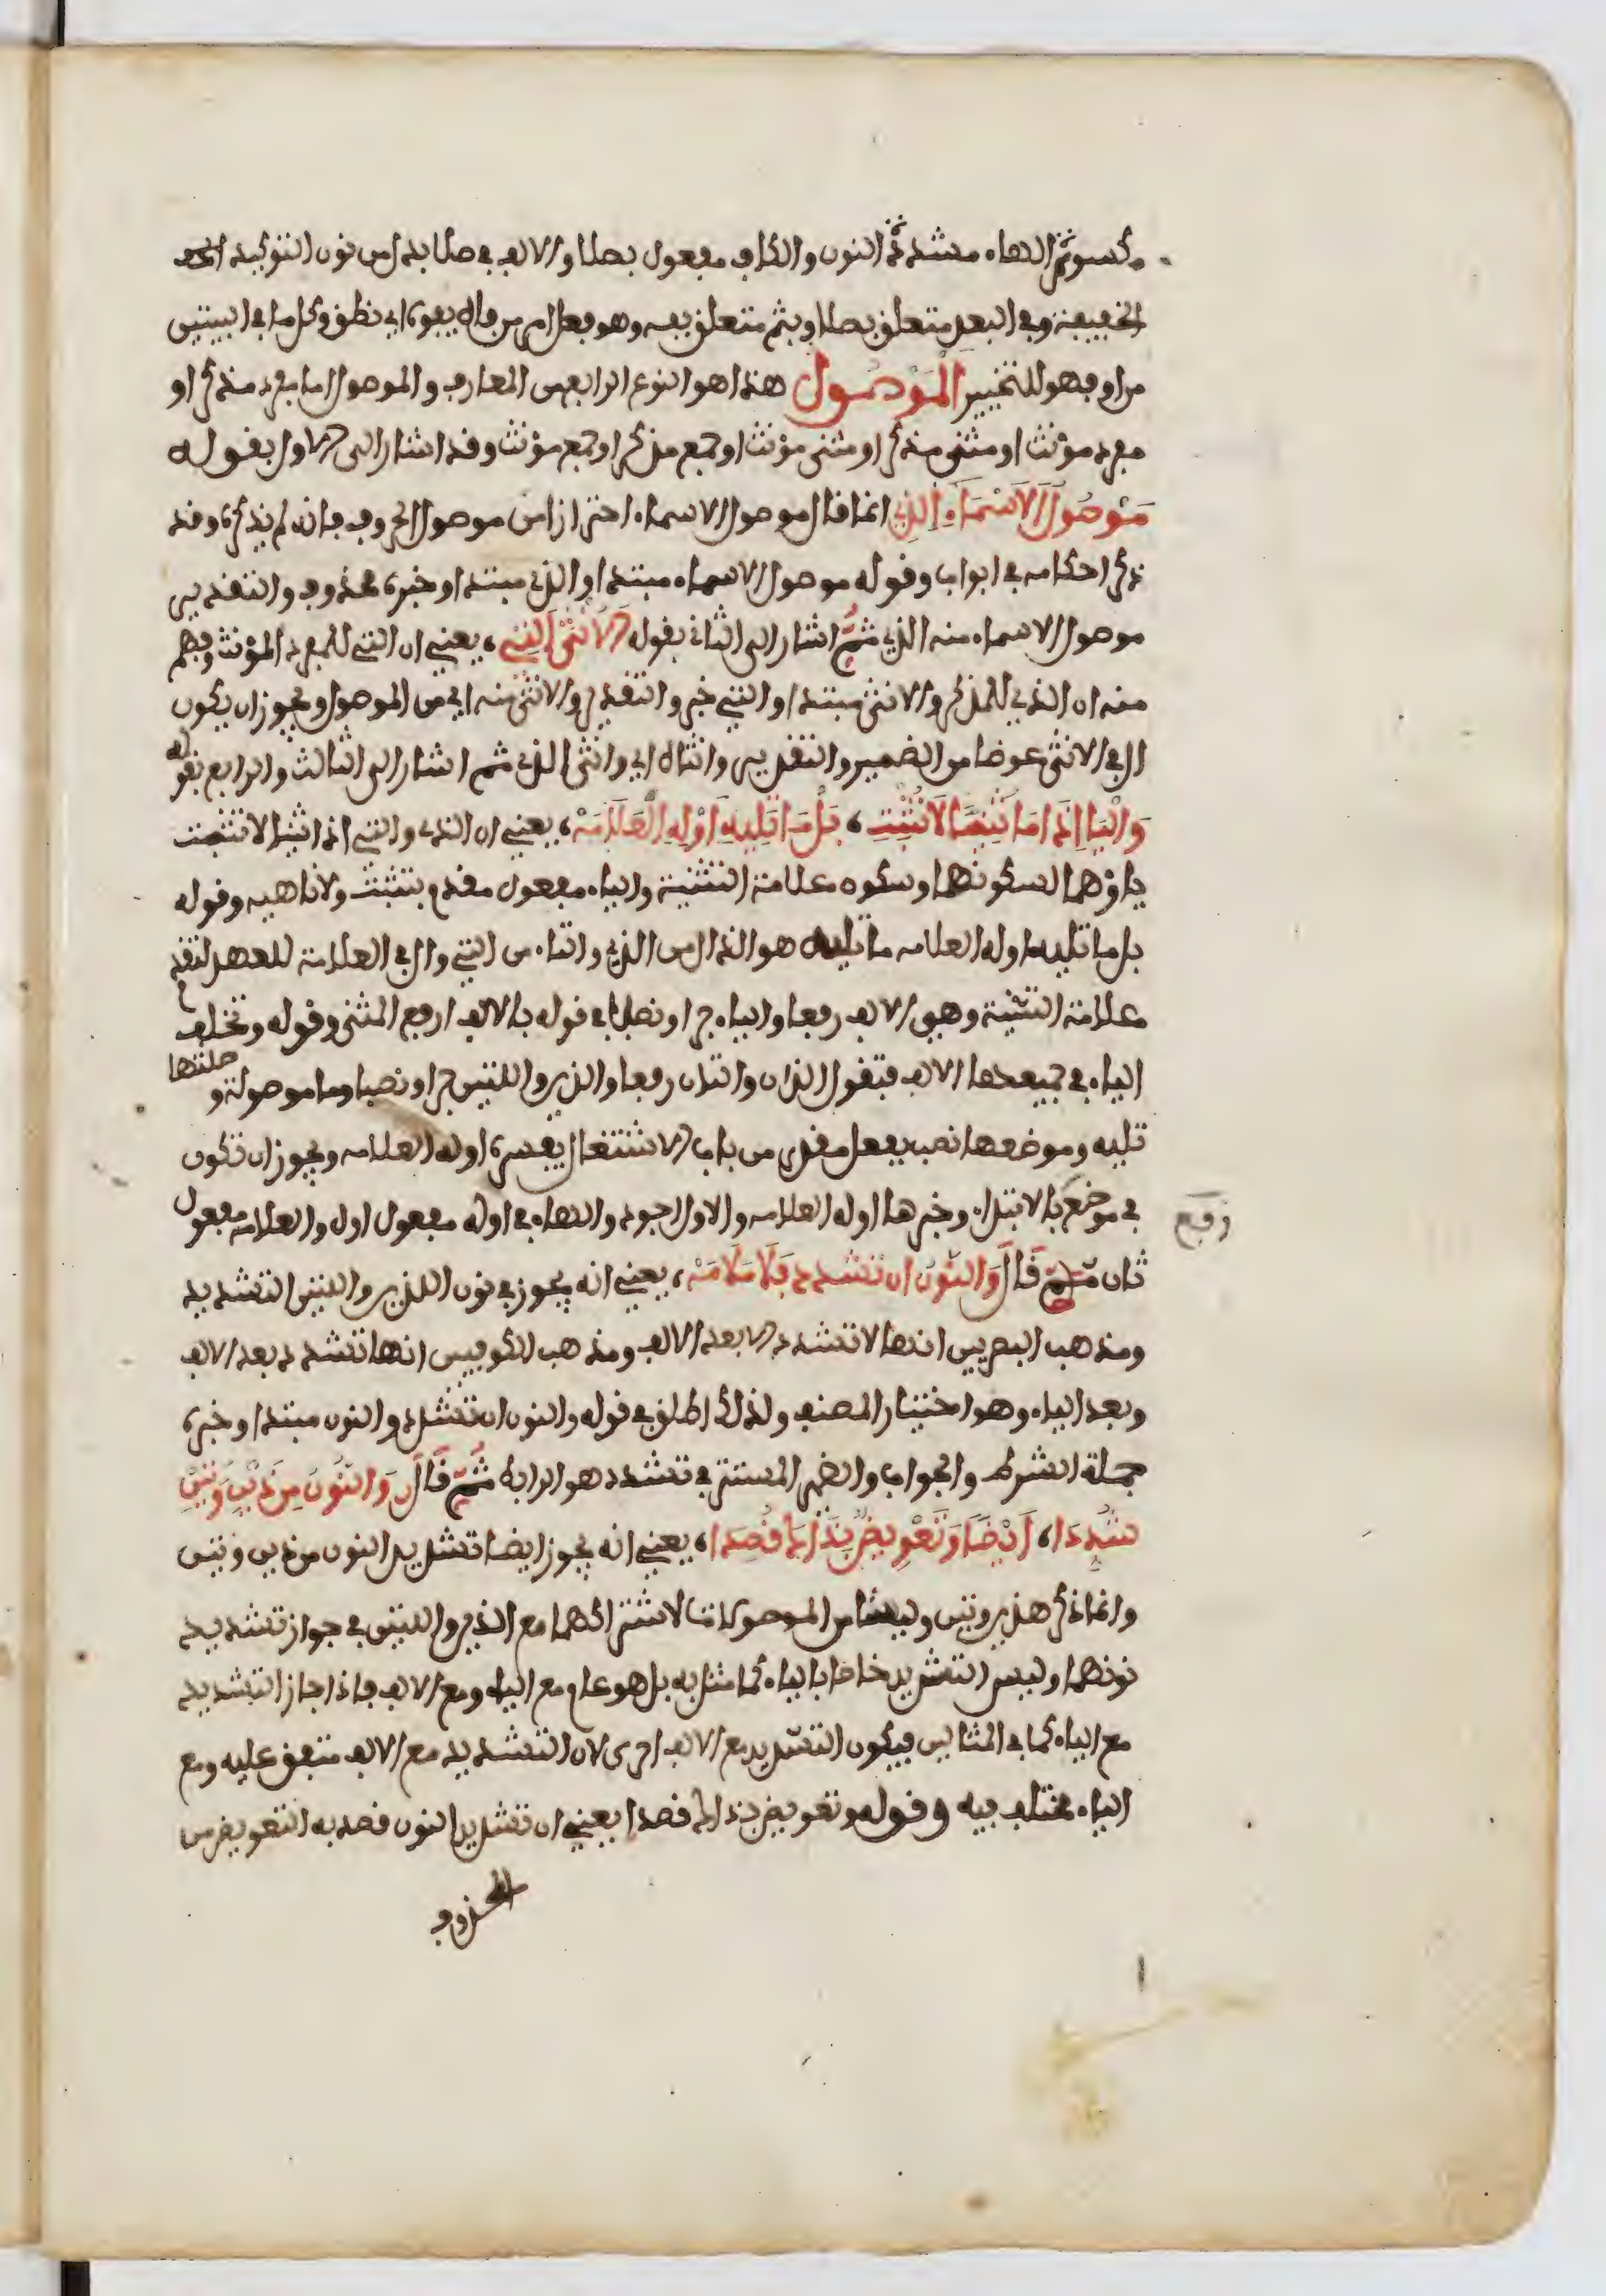 مكسور الهاء مشددة النون والكاف مفعول بصلا والالف في صلا بدل من نون التوكيد
الخفيفة وفي البعد متعلق بصلا وبثم متعلق بفه وهو فعل امر من فاه يفوه اي نطق وكل ما في البيتين
من او فهو للتخيير الموصول هذا هو النوع الرابع من المعارف والموصول اما مفرد مذكر او
مفرد مؤنث او مثنى مذكر او مثنى مؤنث او جمع مذكر او جمع مؤنث وقد اشار الى الاول بقوله
مَوْصُولُ الاَسْمَاءِ الذِي انما قال موصول الاسماء احترازا من موصول الحروف فانه لم يذكره وقد
ذكر احكامه في ابواب وقوله موصول الاسماء مبتدا والذي مبتدا وخبره محذوف والتقدير
موصول الاسماء منه الذي ثُمَّ اشار الى الثاني بقوله الاُنْثَى التِي، يعني ان التي للمفرد المؤنث وفهم
منه ان الذي للمذكر والانثى مبتدا والتي خبر والتقدير والانثى منه اي من الموصول ويجوز ان يكون
ال في الانثى عوضا من الضمير والتقدير وانثاه اي وانثى الذي ثم اشار الى الثالث والرابع بقوله
وَالْيَا إِذَا مَا ثُنِّيَا لاَ تُثْبِتِ، بَلْ مَا تَلِيهِ اوْلِهِ العَلاَمَهْ، يعني ان الذي والتي اذا ثنيا لا تثبت
ياؤهما لسكونها وسكون علامة التثنية والياء مفعول مقدم بتثبت ولا ناهية وقوله
بل ما تليه اوله العلامه ما تليه هو الذال من الذي والتاء من التي وال في العلامة للعهد لتقدم
علامة التثنية وهي الالف رفعا والياء جرا ونصبا في قوله بالالف ارفع المثنى وقوله وتخلف
الياء في جميعها الالف فتقول اللذان واللتان رفعا والذين واللتين جرا ونصبا وما موصولة وصلتها
تليه وموضعها نصب بفعل مقدر من باب الاشتغال يفسره اوله العلامه ويجوز ان تكون
في موضع رفع بالابتداء وخبرها اوله العلامه والاول اجود والهاء في اوله مفعول اول والعلامه مفعول
ثان ثم قَالَ وَالنُّونُ ان تُشْدَد فَلاَ مَلاَمَهْ، يعني انه يجوز في نون اللذين واللتين التشديد
ومذهب البصريين انها لا تشدد الا بعد الالف ومذهب الكوفيين انها تشدد بعد الالف
وبعد الياء وهو اختيار المصنف ولذلك اطلق في قوله والنون ان تشدد والنون مبتدا وخبره
جملة الشرط والجواب والضمير المستتر في تشدد هو الرابط ثُمَّ قَالَ وَالنُّونُ مِن ذَيْنِ وَتَيْنِ
شُدِّدَا، اَيْضًا وَتَعْوِيضٌ بِذَاكَ قُصِدَا، يعني انه يجوز ايضا تشديد النون من ذين وتين
وانما ذكر هذين وتين وليسا من الموصولات لاشتراكهما مع الذين واللتين في جواز تشديد
نونهما وليس التشديد خاصا بالياء كما مثل به بل هو عام مع الياء ومع الالف فاذا جاز التشديد
مع الياء كما في المثالين فيكون التشديد مع الالف احرى لان التشديد مع الالف متفق عليه ومع
الياء مختلف فيه وقوله وتعويض بذاك قصدا يعني ان تشديد النون قصد به التعويض من
المحذوف